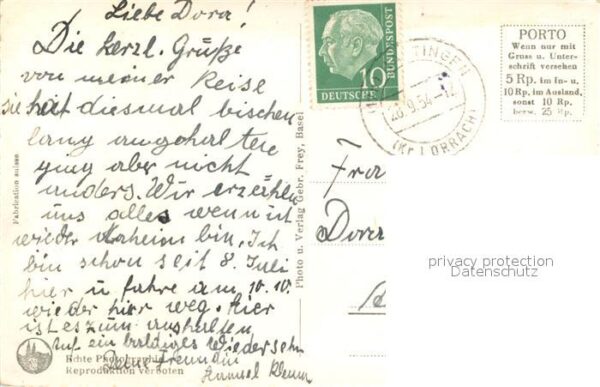 Liebe Dora!
Die herzl. Grüße
von meiner Reise
sie hat diesmal bischen
lang angehalten
ging aber nicht
anders. Wir erzählen
uns alles wenn ich
wieder daheim bin. Ich
bin schon seit 8. Juli
hier u fahre am 10.10.
wieder hier weg. Hier
ist es zum aushalten
Auf ein baldiges Wiedersehn
Deine Freundin
Echte Photographie
Reproduktion verboten
Fabrication suisse
Photo u. Verlag Gebr. Frey, Basel
10
DEUTSCHE BUNDESPOST
28.9.54-12
(Kr LÖRRACH)
PORTO
Wenn nur mit
Gruss u. Unter-
schrift versehen
5 Rp. im In- u.
10 Rp. im Ausland,
sonst 10 Rp.
bezw. 25 Rp.
Fra
privacy protection
Datenschutz